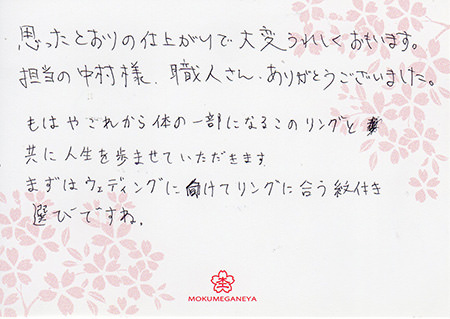 思ったとおりの仕上がりで大変うれしくおもいます。
担当の中村様、職人さん、ありがとうございました。
もはやこれから体の一部になるこのリングと
共に人生を歩ませていただきます
まずはウェディングに向けてリングに合う紋付き
選びですね。
MOKUMEGANEYA